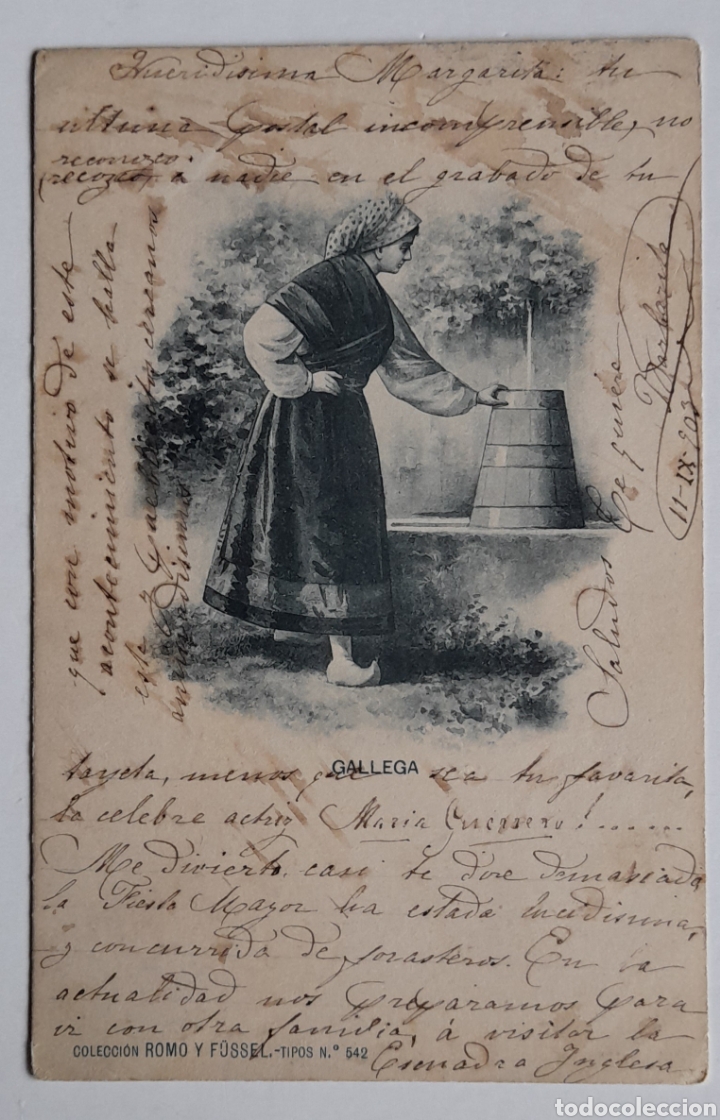 Queridisima Margarita: tu
ultima postal incomprensible, no
reconozco
(recozco) a nadie en el grabado de tu
GALLEGA
tarjeta, menos que sea tu favorita,
la celebre actriz Maria Guerrero!......
Me divierto casi te dire demasiado
la Fiesta Mayor ha estada lucidisima,
y concurrida de forasteros. En la
actualidad nos preparamos para
ir con otra familia, á visitar la
Escuadra Inglesa
que con motivo de este
acontecimiento se halla
esta y pueblecitos cercanos
animadisimos
Saludos
te quiere
Margarita
11-IX-903
COLECCIÓN ROMO Y FÜSSEL.-TIPOS N.º 542
todocoleccion